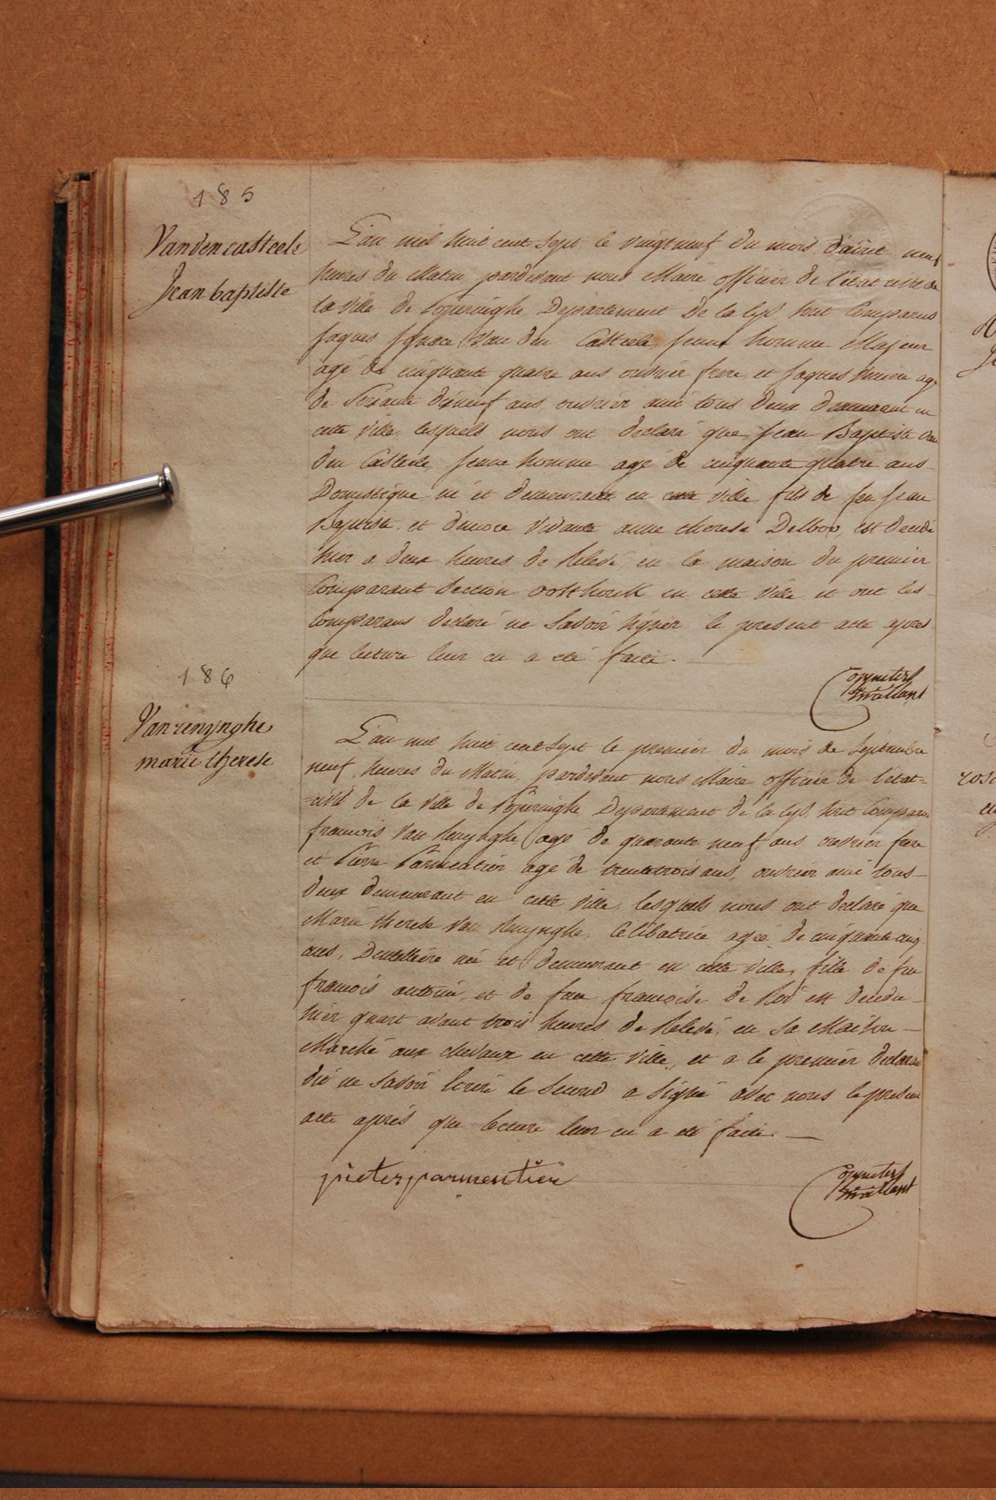 185
Vanden casteele
Jean baptiste
L'an mil huit cent Sept le vingt neuf du mois d'aout neuf
heures du Matin pardevant nous Maire officier de l'état civil de
la ville de Poperinghe Departement De la Lys sont Comparus
Jaques Van den Casteele jeune homme Majeur
agé de cinquante quatre ans ouvrier frere et Jaques agé
de Soixante dixneuf ans ouvrier ami tous deux demeurant en
cette ville lesquels nous ont declaré que Jean Baptiste Van
den Casteele jeune homme agé de cinquante quatre ans
Domestique né et demeurant en cette ville fils de feu Jean
Baptiste et d'encore vivante anne therese Delboo est decedé
hier a deux heures de Relevé en la maison du premier
Comparant Section oosthoeck en cette ville et ont les
Comparans declaré ne Savoir Signer le present acte apres
que lecture leur en a eté faite.
186
Van renynghe
marie therese
L'an mil huit cent Sept le premier du mois de Septembre
neuf heures du Matin pardevant nous Maire officier de l'etat
civil de la ville de Poperinghe Departement de la Lys sont Comparus
francois Van Renynghe agé de quarante neuf ans ouvrier frere
et Pierre Parmentier agé de trente trois ans ouvrier ami tous
deux demeurant en cette ville lesquels nous ont declaré que
Marie therese Van Renynghe Celibatrice agée de cinquante cinq
ans, Dentellière née et demeurant en cette ville, fille de feu
francois antoine et de feue francoise de Roi est decedée
hier quart avant trois heures de Relevé en Sa Maison
Marché aux chevaux en cette ville, et a le premier declaré
ne Savoir Ecrire le Second a Signé avec nous le present
acte aprés que lecture leur en a eté faite.
pieter parmentier